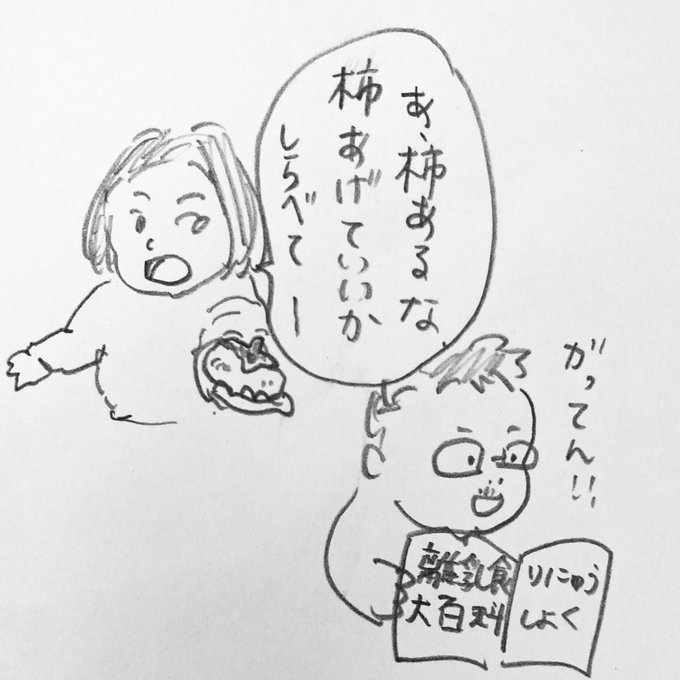 あ、柿あるな
柿あげていいか
しらべてー
がってん!!
離乳食
大百科
りにゅう
しょく